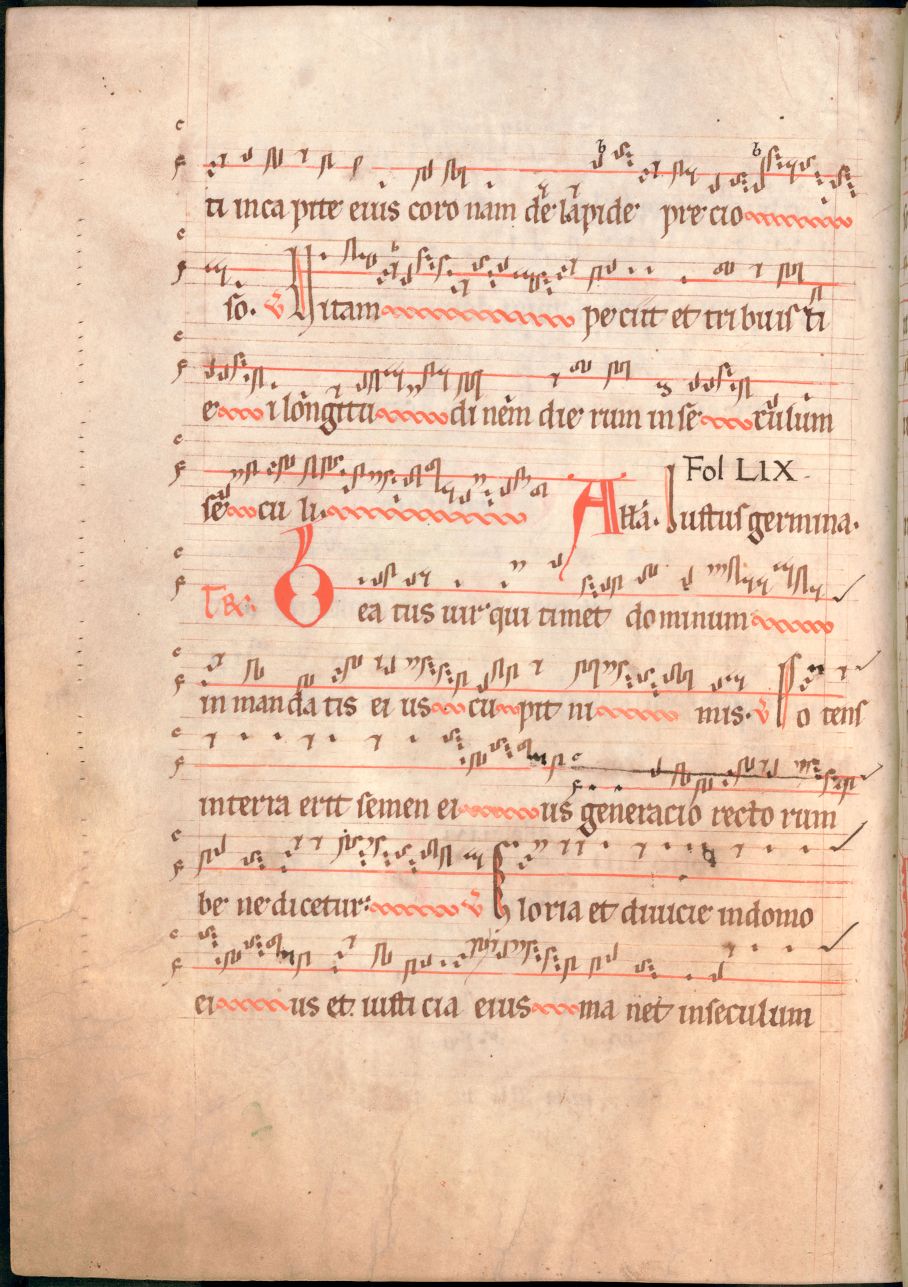 ti in ca pite eius coro nam de lapide pre cio
so. v Vitam pe ciit et tri buisti
e i longitu di nem die rum in se culum
se cu li. Alla. Iustus germina.
Fol LIX
Tr: Bea tus uir qui timet dominum
in manda tis ei us cu pit ni mis. v Po tens
in terra erit semen ei us generacio recto rum
be ne dicetur: v Gloria et diuicie in domo
ei us et iusti cia eius ma net in seculum